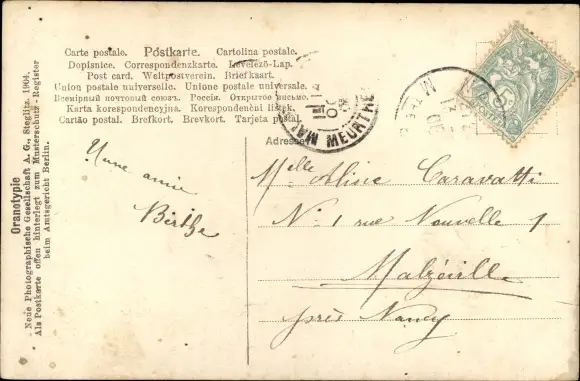 Carte postale. Postkarte. Cartolina postale.
Dopisnice. Correspondenzkarte. Levelező-Lap.
Post card. Weltpostverein. Briefkaart.
Union postale universelle. Unione postale universale.
Всемірный почтовый союзъ. Россія. Открытое письмо.
Karta korespondencyjna. Korespondenčni listek.
Cartão postal. Brefkort. Brevkort. Tarjeta postal.
MEURTHE
Adresse
Une amie
Berthe
Melle Aline Caravatti
No 1 rue Nouvelle 1
Malzéville
près Nancy
Oranotypie
Neue Photographische Gesellschaft A. G., Steglitz. 1904.
Als Postkarte offen hinterlegt zum Musterschutz-Register
beim Amtsgericht Berlin.